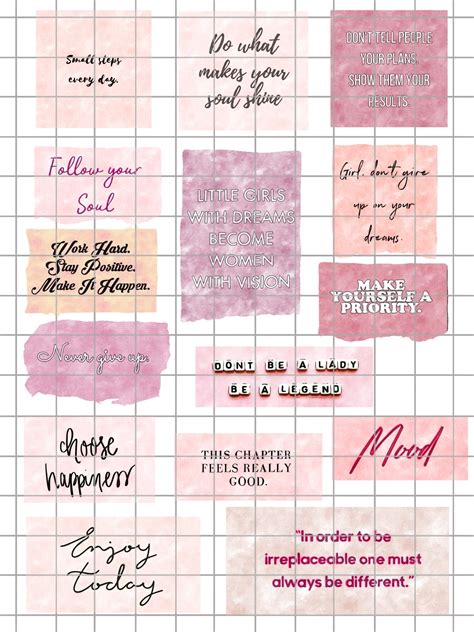 Small steps
every day.
Do what
makes your
soul shine
DON'T TELL PEOPLE
YOUR PLANS,
SHOW THEM YOUR
RESULTS.
Follow your
Soul
LITTLE GIRLS
WITH DREAMS
BECOME
WOMEN
WITH VISION
Girl, don't give
up on your
dreams.
Work Hard.
Stay Positive.
Make It Happen.
MAKE
YOURSELF A
PRIORITY.
Never give up.
DONT BE A LADY
BE A LEGEND
choose
happiness
THIS CHAPTER
FEELS REALLY
GOOD.
Mood
Enjoy
Today
"In order to be
irreplaceable one must
always be different."